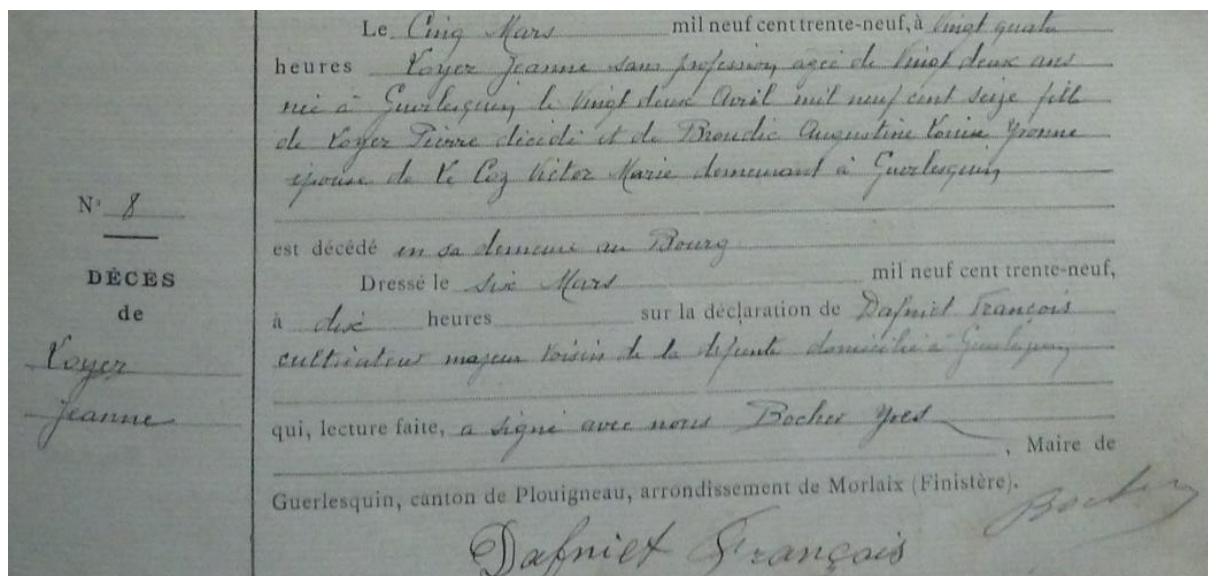 Le Cinq Mars mil neuf cent trente-neuf, à vingt quatre
heures Loyer Jeanne sans profession agée de Vingt deux ans
née à Guerlesquin le Vingt deux Avril mil neuf cent seize fille
de Loyer Pierre décédé et de Broudic Augustine Louise Yvonne
épouse de Le Coz Victor Marie demeurant à Guerlesquin
est décédé en sa demeure au Bourg
Dressé le six Mars mil neuf cent trente-neuf,
à dix heures sur la déclaration de Dafniet François
cultivateur majeur Voisin de la défunte domicilié à Guerlesquin
qui, lecture faite, a signé avec nous Bocher Yves
, Maire de
Guerlesquin, canton de Plouigneau, arrondissement de Morlaix (Finistère).
Bocher
Dafniet François
N° 8
DÉCÈS
de
Loyer
Jeanne